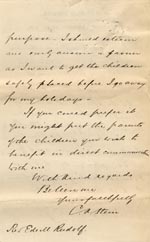 purpose - I should esteem
an early answer a favour
as I want to get the children
safely placed before I go away
for my holidays -
If you would prefer it
you might put the parents
of the children you wish to
benefit in direct communicn
with me
With kind regards
Believe me
Yours faithfully
Rev Edwd Rudolf